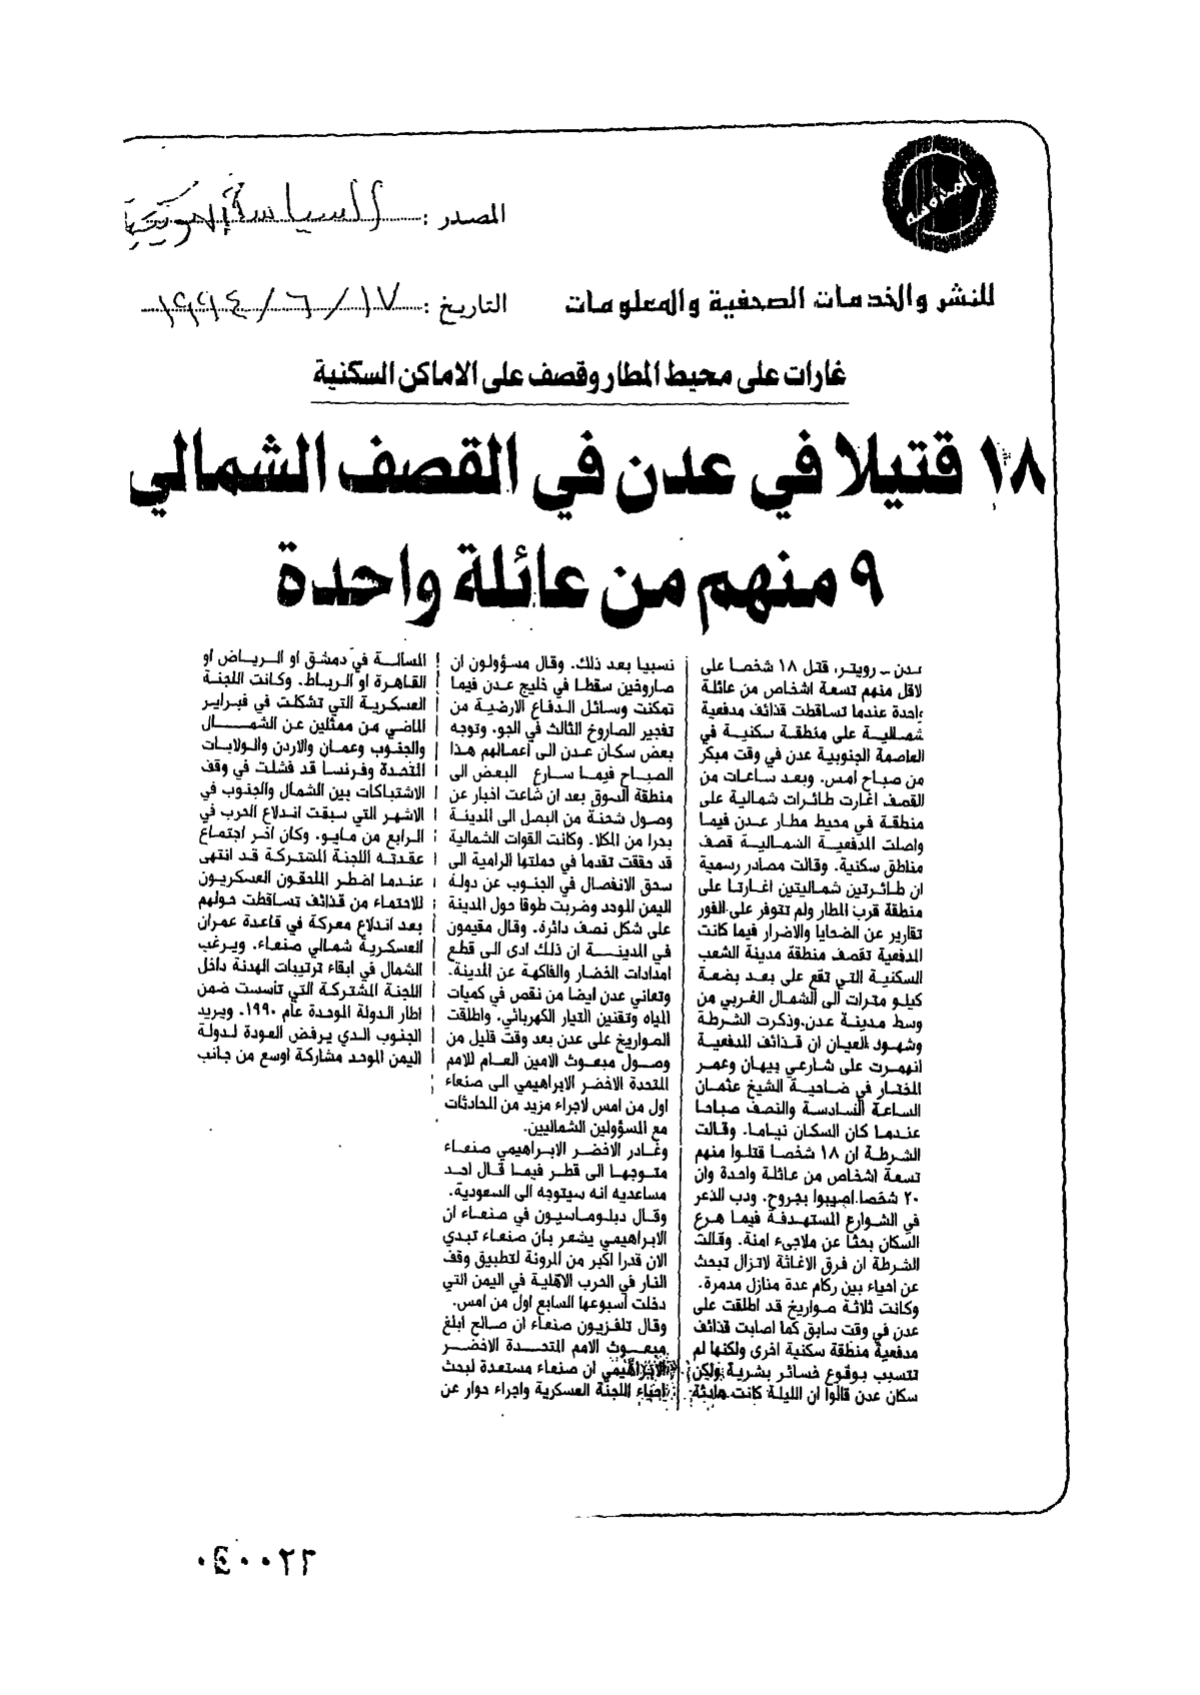 المصدر : السياسة الكويتية
للنشر والخدمات الصحفية والمعلومات
التاريخ : ١٧/٦/١٩٩٤
غارات على محيط المطار وقصف على الاماكن السكنية
١٨ قتيلا في عدن في القصف الشمالي
٩ منهم من عائلة واحدة
عدن ــ رويتر، قتل ١٨ شخصا على
لاقل منهم تسعة اشخاص من عائلة
احدة عندما تساقطت قذائف مدفعية
شمالية على منطقة سكنية في
العاصمة الجنوبية عدن في وقت مبكر
من صباح امس. وبعد ساعات من
القصف اغارت طائرات شمالية على
منطقة في محيط مطار عدن فيما
واصلت المدفعية الشمالية قصف
مناطق سكنية. وقالت مصادر رسمية
ان طائرتين شماليتين اغارتا على
منطقة قرب المطار ولم تتوفر على الفور
تقارير عن الضحايا والاضرار فيما كانت
المدفعية تقصف منطقة مدينة الشعب
السكنية التي تقع على بعد بضعة
كيلو مترات الى الشمال الغربي من
وسط مدينة عدن.وذكرت الشرطة
وشهود العيان ان قذائف المدفعية
انهمرت على شارعي بيهان وعمر
المختار في ضاحية الشيخ عثمان
الساعة السادسة والنصف صباحا
عندما كان السكان نياما. وقالت
الشرطة ان ١٨ شخصا قتلوا منهم
تسعة اشخاص من عائلة واحدة وان
٢٠ شخصا اصيبوا بجروح. ودب الذعر
في الشوارع المستهدفة فيما هرع
السكان بحثا عن ملاجىء امنة. وقالت
الشرطة ان فرق الاغاثة لاتزال تبحث
عن احياء بين ركام عدة منازل مدمرة.
وكانت ثلاثة صواريخ قد اطلقت على
عدن في وقت سابق كما اصابت قذائف
مدفعية منطقة سكنية اخرى ولكنها لم
تتسبب بوقوع خسائر بشرية ولكن
سكان عدن قالوا ان الليلة كانت هادئة
نسبيا بعد ذلك. وقال مسؤولون ان
صاروخين سقطا في خليج عدن فيما
تمكنت وسائل الدفاع الارضية من
تفجير الصاروخ الثالث في الجو. وتوجه
بعض سكان عدن الى اعمالهم هذا
الصباح فيما سارع البعض الى
منطقة السوق بعد ان شاعت اخبار عن
وصول شحنة من البصل الى المدينة
بحرا من المكلا. وكانت القوات الشمالية
قد حققت تقدما في حملتها الرامية الى
سحق الانفصال في الجنوب عن دولة
اليمن الموحد وضربت طوقا حول المدينة
على شكل نصف دائرة. وقال مقيمون
في المدينة ان ذلك ادى الى قطع
امدادات الخضار والفاكهة عن المدينة.
وتعاني عدن ايضا من نقص في كميات
المياه وتقنين التيار الكهربائي. واطلقت
المواريخ على عدن بعد وقت قليل من
وصول مبعوث الامين العام للامم
المتحدة الاخضر الابراهيمي الى صنعاء
اول من امس لاجراء مزيد من المحادثات
مع المسؤولين الشماليين.
وغادر الاخضر الابراهيمي صنعاء
متوجها الى قطر فيما قال احد
مساعديه انه سيتوجه الى السعودية.
وقال دبلوماسيون في صنعاء ان
الابراهيمي يشعر بان صنعاء تبدي
الان قدرا اكبر من المرونة لتطبيق وقف
النار في الحرب الاهلية في اليمن التي
دخلت اسبوعها السابع اول من امس.
وقال تلفزيون صنعاء ان صالح ابلغ
مبعوث الامم المتحدة الاخضر
الابراهيمي ان صنعاء مستعدة لبحث
احياء اللجنة العسكرية واجراء حوار عن
المسالة في دمشق او الرياض او
القاهرة او الرباط. وكانت اللجنة
العسكرية التي تشكلت في فبراير
الماضي من ممثلين عن الشمال
والجنوب وعمان والاردن والولايات
المتحدة وفرنسا قد فشلت في وقف
الاشتباكات بين الشمال والجنوب في
الاشهر التي سبقت اندلاع الحرب في
الرابع من مايو. وكان اخر اجتماع
عقدته اللجنة المشتركة قد انتهى
عندما اضطر الملحقون العسكريون
للاحتماء من قذائف تساقطت حولهم
بعد اندلاع معركة في قاعدة عمران
العسكرية شمالي صنعاء. ويرغب
الشمال في ابقاء ترتيبات الهدنة داخل
اللجنة المشتركة التي تأسست ضمن
اطار الدولة الموحدة عام ١٩٩٠. ويريد
الجنوب الذي يرفض العودة لدولة
اليمن الموحد مشاركة اوسع من جانب